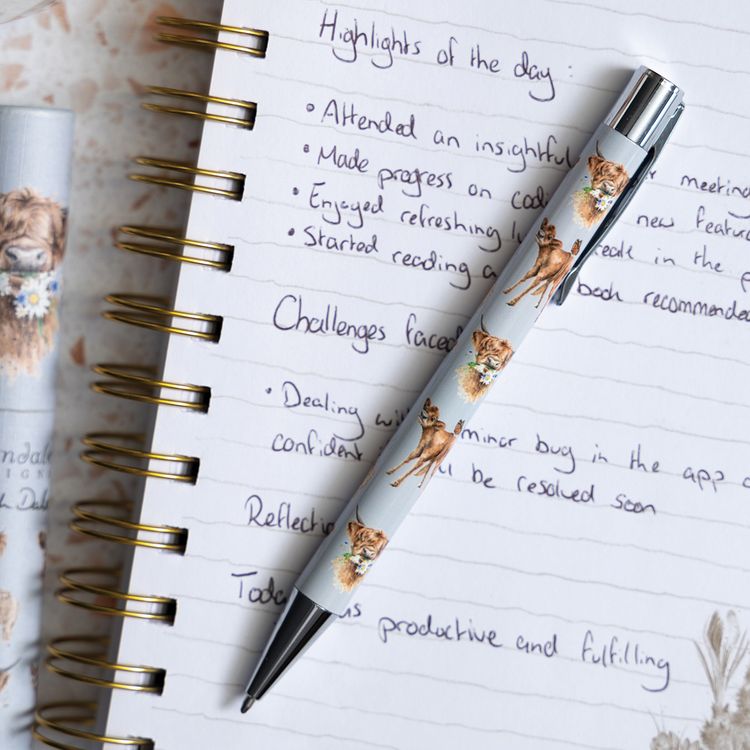 Highlights of the day :
• Attended an insightful meeting
• Made progress on new feature
• Enjoyed refreshing in the
• Started reading a book recommended
Challenges faced
• Dealing minor bug in the app
confident be resolved soon
Today productive and fulfilling